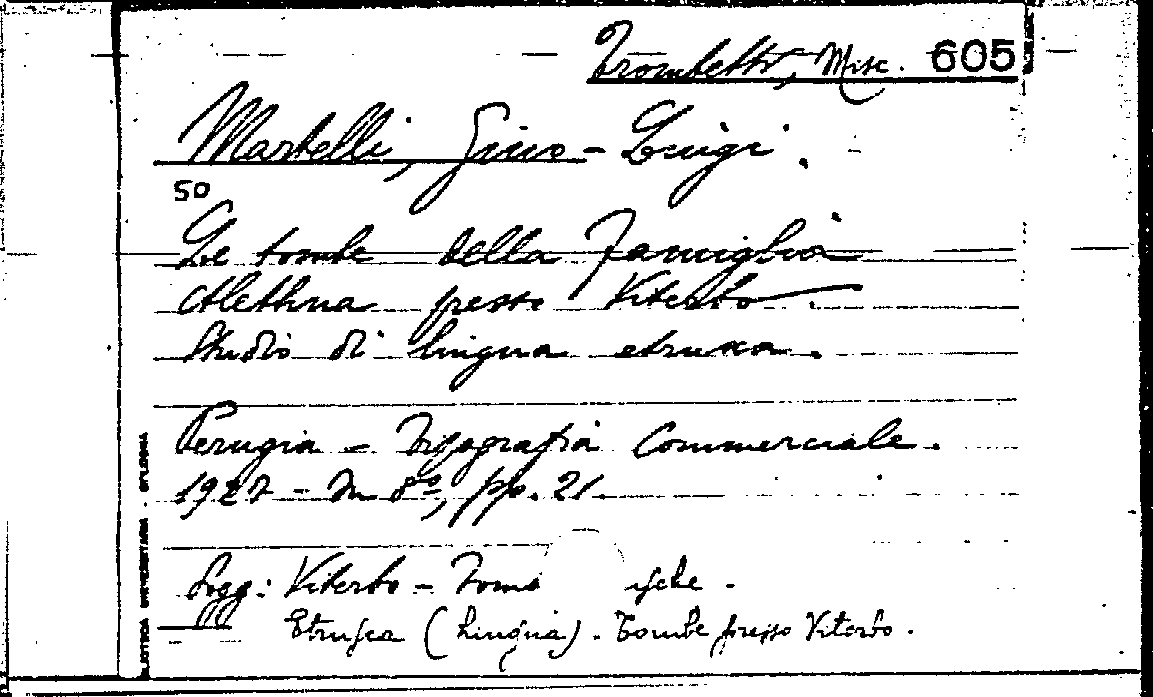 Trombetti, Misc. 605
Martelli, Gino-Luigi.
50
Le tombe della Famiglia
Alethna presso Viterbo.
Studio di lingua etrusca.
Perugia - Tipografia Commerciale.
1927 - In 8º, pp. 21.
Sogg: Viterbo - Tombe
Etrusca (Lingua). Tombe presso Viterbo.
BIBLIOTECA UNIVERSITARIA - BOLOGNA